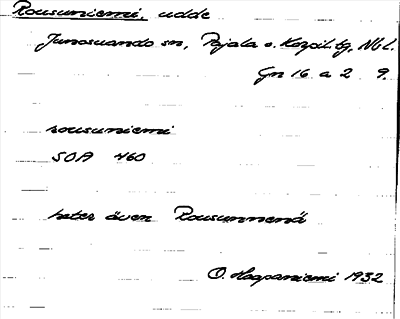 Rousuniemi, udde
Junosuando sn, Pajala o. Korpil. tg, Nbl.
Gn 16 a 2 9.
rousuniemi
SOA 460
heter även Rousunnenä
O. Haapaniemi 1932